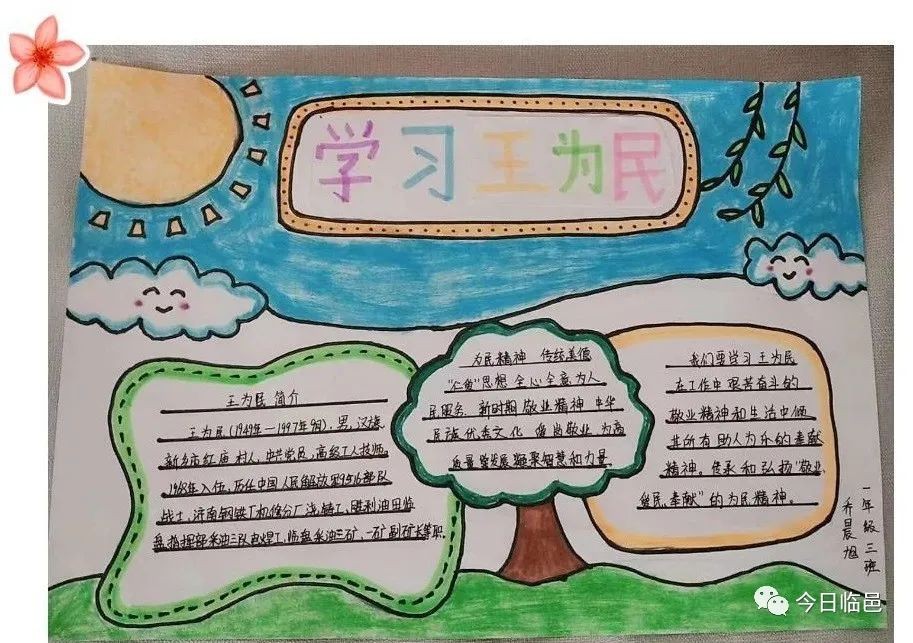 学习王为民
王为民简介
王为民(1949年—1997年9月),男,汉族,
新乡市红庙村人,中共党员,高级工人技师。
1968年入伍,历任中国人民解放军9516部队
战士,济南钢铁厂机修分厂浇铸工,胜利油田临
盘指挥部采油三队电焊工,临盘采油三矿、一矿副矿长等职。
为民精神 传统美德
思想 全心全意为人
民服务 新时期敬业精神 中华
民族优秀文化 爱岗敬业 为高
质量发展凝聚智慧和力量
我们要学习王为民
在工作中艰苦奋斗的
敬业精神和生活中倾
其所有助人为乐的奉献
精神。传承和弘扬"敬业、
爱民、奉献"的为民精神。
一年级三班
乔晨旭
今日临邑